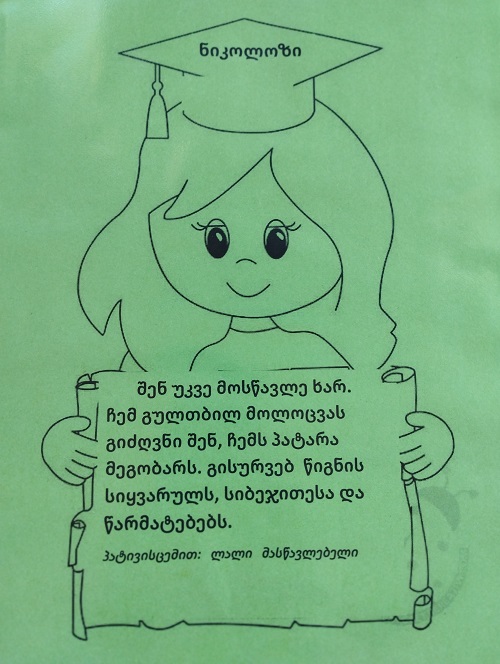 ნიკოლოზი
შენ უკვე მოსწავლე ხარ.
ჩემ გულთბილ მოლოცვას
გიძღვნი შენ, ჩემს პატარა
მეგობარს. გისურვებ წიგნის
სიყვარულს, სიბეჯითესა და
წარმატებებს.
პატივისცემით: ლალი მასწავლებელი